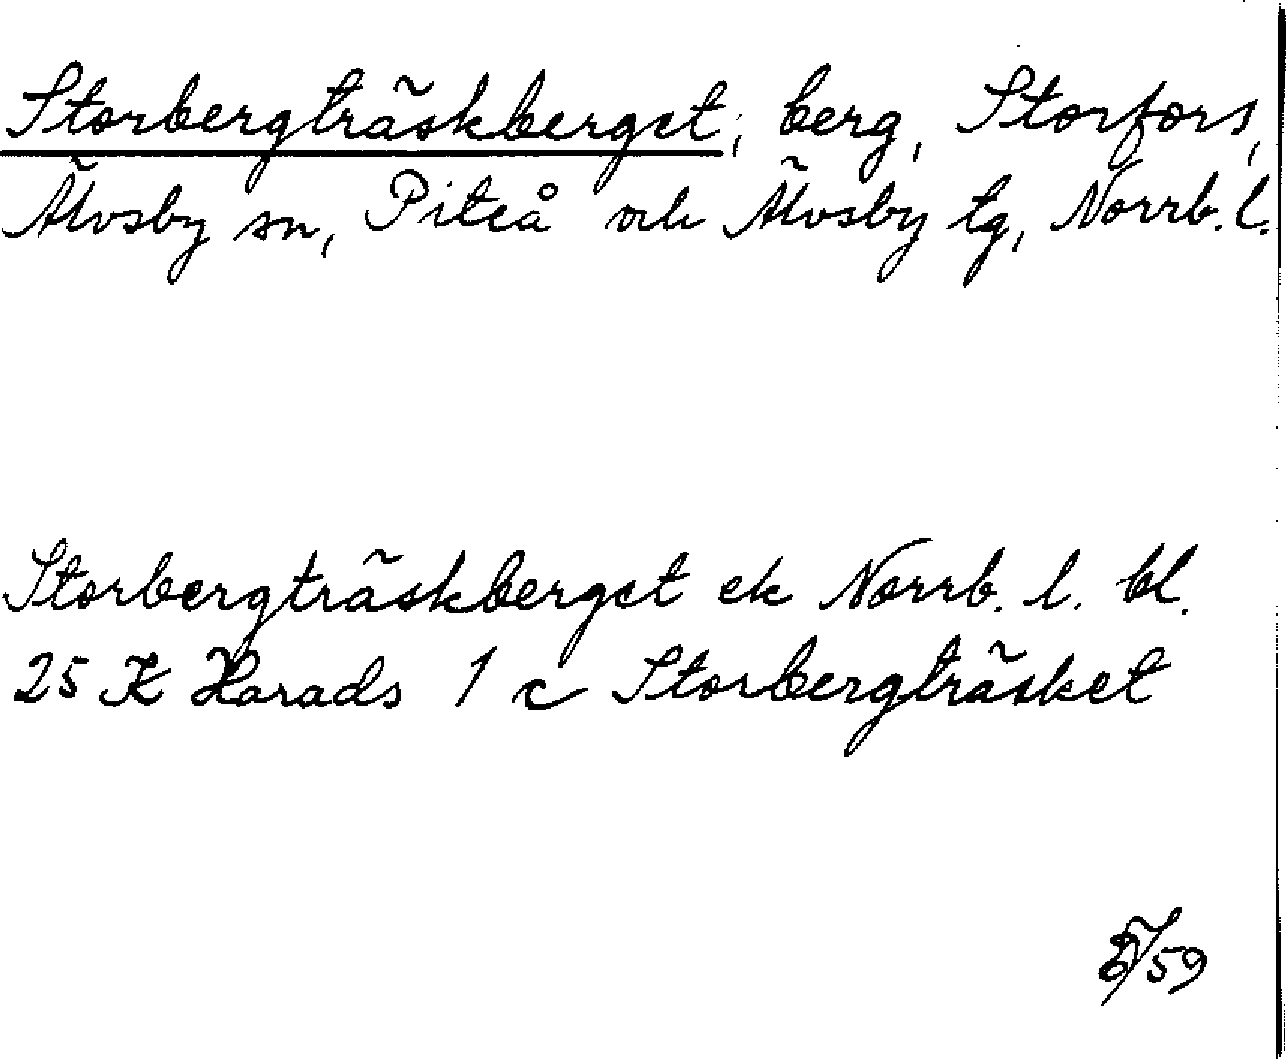 Storbergträskberget, berg, Storfors,
Älvsby sn, Piteå och Älvsby tg, Norrb. l.
Storbergträskberget ek Norrb. l. bl.
25 K Harads 1 c Storbergträsket
/59